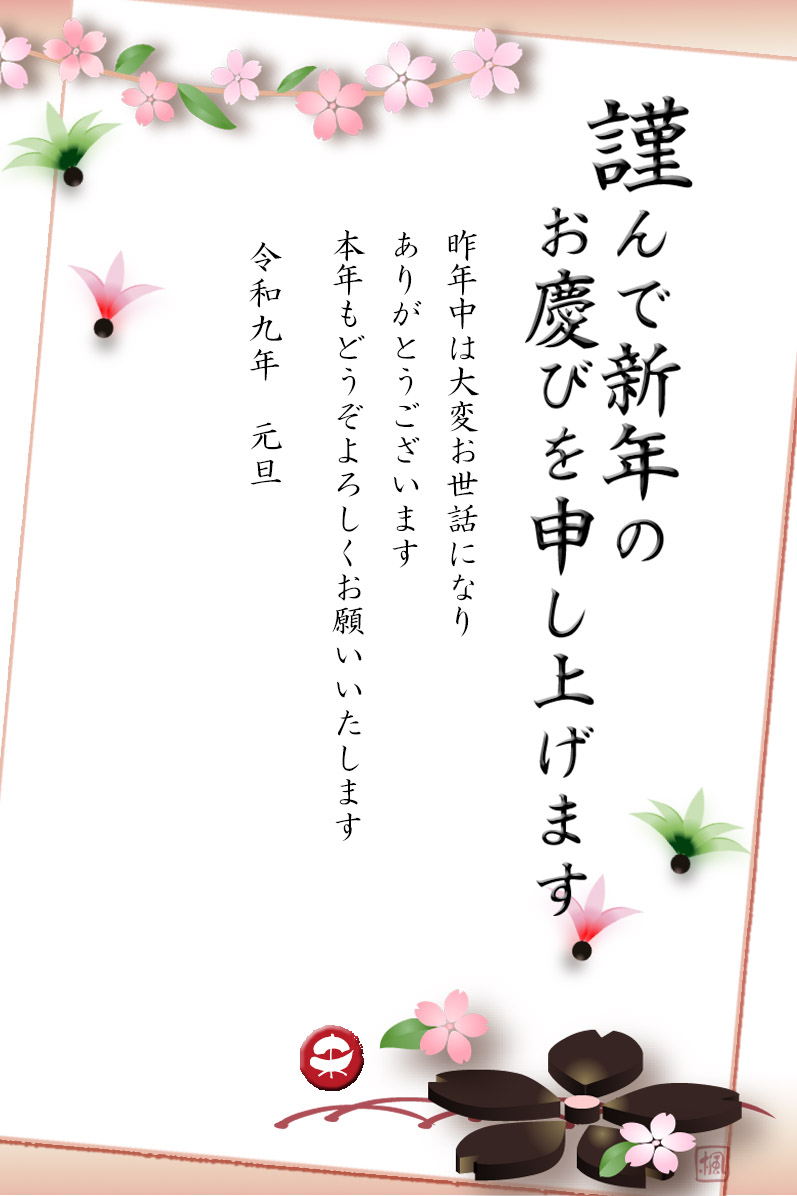 謹んで新年の
お慶びを申し上げます
昨年中は大変お世話になり
ありがとうございます
本年もどうぞよろしくお願いいたします
令和九年　元旦
楓